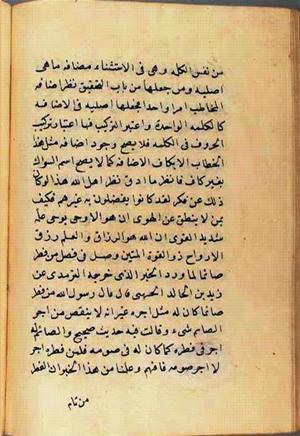 من نفس الكلمة وهى فى الاستثناء مضافه ما هى
اصليه ومن جعلها من باب التحقيق نظر اضافه
المخاطب امرا واحدا فجعلها اصليه فى الاضافه
كالكلمه الواحدة واعتبر التركيب فيها اعتبار تركيب
الحروف فى الكلمه فلا يصح وجود اضافه مثل هذا
الخطاب الا بكاف الاضافه كما لا يصح اسم السواك
بغير كاف فانظر ما ادق نظر اهل الله هذا لو كان
ذلك عن فكر لقد كانوا يفضلون به على غيرهم فكيف
بمن لا ينطق عن الهوى ان هو الا وحى يوحى علمه
شديد القوى ان الله هو الرزاق والعلم رزق
الارواح ذو القوة المتين وصل فى فصل من فطر
صائما لما ورد الخبر الذى خرجه الترمذى عن
زيد بن خالد الجهنى قال قال رسول الله من فطر
صائما كان له مثل اجره غير انه لا ينقص من اجر
الصائم شىء وقال فيه حديث صحيح والصائم له
اجر فى فطره كما كان له فى صومه فلمن فطره اجر
لا اجر صومه فافهم وعلمنا من هذا الخبر ان الفعل
من تام